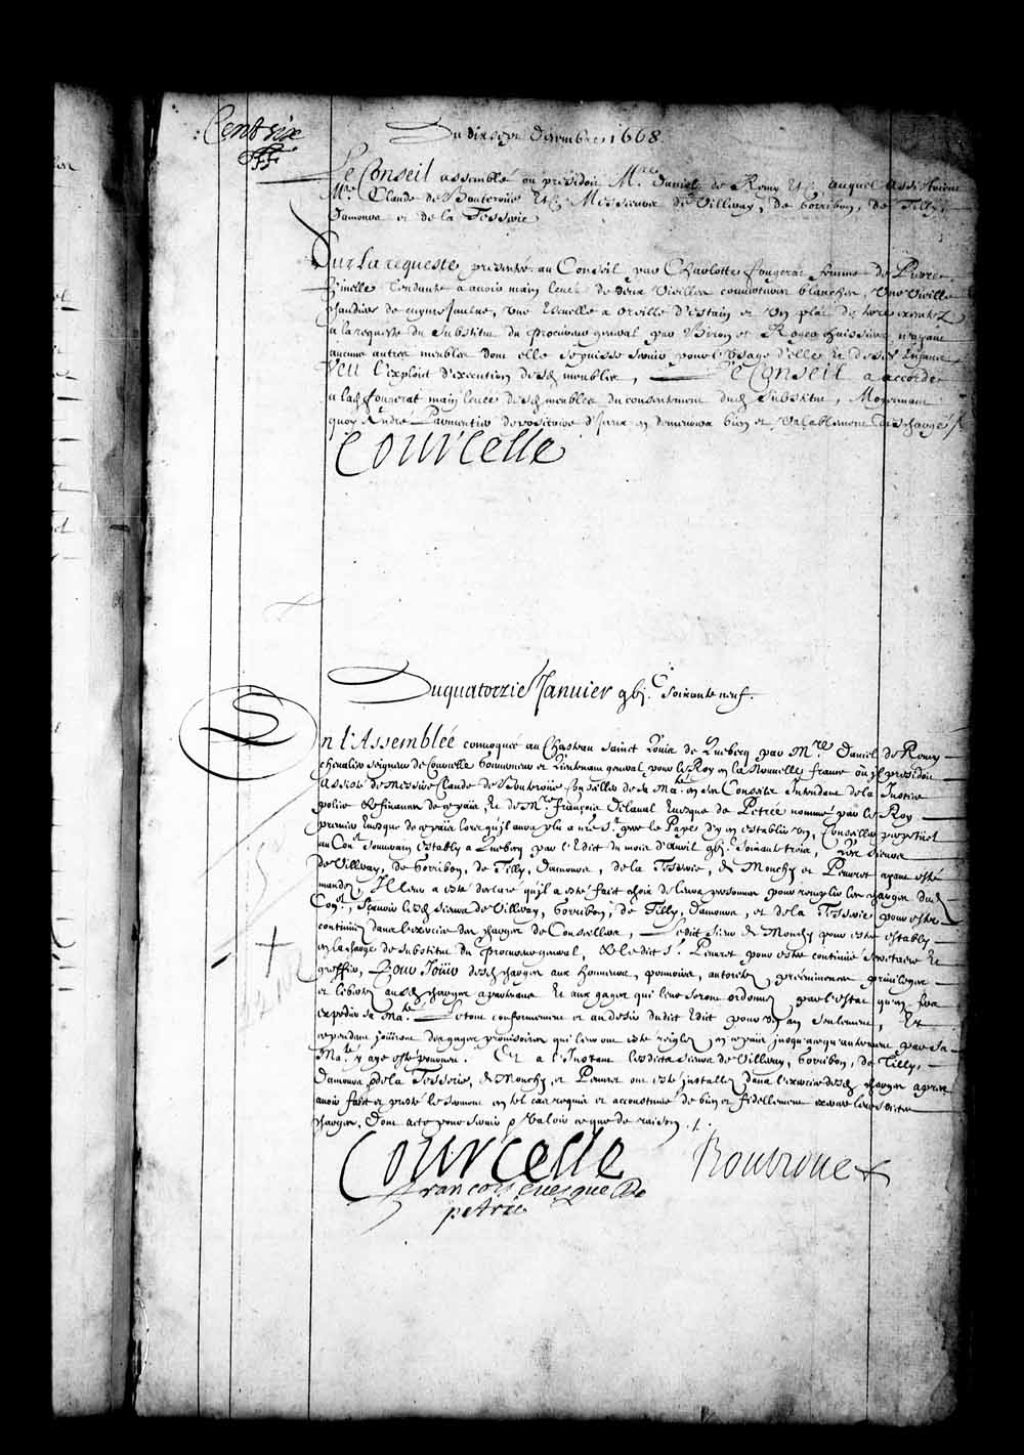 Cent six
Du dixsepe Decembre 1668
Le Conseil assemblé ou presidoit M.re Daniel de Remy &c. auquel assistoient
M.re Claude de Boutroüe &c Messieurs de Villeray, de Gorribon, de Tilly,
Damours et de la Tesserie
Sur la requeste presentée au Conseil par Charlotte fougerat femme de Pierre
tendante a avoir main levée de deux vieilles couvertures blanches, Une vieille
chaudiere de cuyure Jaulne, Une Escuelle a oreille d'Estain et Un plat de terre
a la requeste du Substitut du procureur general par Biron et Roger huissiers n'ayant
aucuns autres meubles dont elle se puisse servir pour l'Usage d'elle et de ses Enfans
Veu l'Exploit d'execution desd meubles, Le Conseil a accordé
a lad fougerat main levée desd meubles du consentement dud Substitut, Moyennant
quoy André Parmentier depositaire d'Iceux en demeurera bien et Valablement deschargé
Courcelle
Du quatorzie Janvier gbj.C soixante neuf.
En l'Assemblée convoquée au Chasteau Sainct Loüis de Quebecq par M.re Daniel de Remy
chevalier seigneur de Courcelle Gouverneur et Lieutenant general pour le Roy en la Nouvelle france ou il presidoit
Assisté de Messire Claude de Boutroüe Conseiller de sa Ma.té en ses Conseils Intendant de la Justice
police & finances de ce païs, Et de M.re François Delaval Evesque de Petrée nommé par le Roy
premier Evesque de ce païs lors qu'il aura plu a n.re S.t pere le Pape d'y en establir un, Conseiller perpetuel
au Con.el Souverain establi a Quebecq par l'Edit du mois d'Avril gbj.C soixante trois, Les Sieurs
de Villeray, de Gorribon, de Tilly, Damours, de la Tesserie, de Mouchy et Peuvret ayant esté
mandez, Il leur a esté declaré qu'il a esté fait choix de leurs personnes pour remplir les charges dud
Con.el, Sçavoir lesd sieurs de Villeray, Gorribon, de Tilly, Damours, et de la Tesserie pour estre
continuez dans l'exercice des charges de Conseillers, Ledit sieur de Mouchy pour estre estably
en la charge de substitut du procureur general, & ledict S.r Peuvret pour estre continué Secretaire Et
greffier, Pour Joüir desd charges aux honneurs, pouvoirs, autoritez preéminences privileges
et libertez ausd charges apartenans Et aux gages qui leur seront ordonnez par l'estat qu'en fera
expedier sa Ma.té Le tout conformement et au desir dudit Edit pour Un an seulement, Et
cependant joüiront des gages provisoires qui leur ont esté reglez en ce païs jusqu'a ce qu'autrement par sa
Ma.té y aye esté pourveu. Et a l'Instant lesdits sieurs de Villeray, Gorribon, de Tilly,
Damours, de la Tesserie, de Mouchy et Peuvret ont esté installez dans l'exercice desd charges apres
avoir fait et presté le serment en tel cas requis et accoustumé de bien et fidellement exercer lesdites
charges, Dont acte pour servir & Valoir ce que de raison.
Courcelle Boutroue
françois Evesque De
petrée